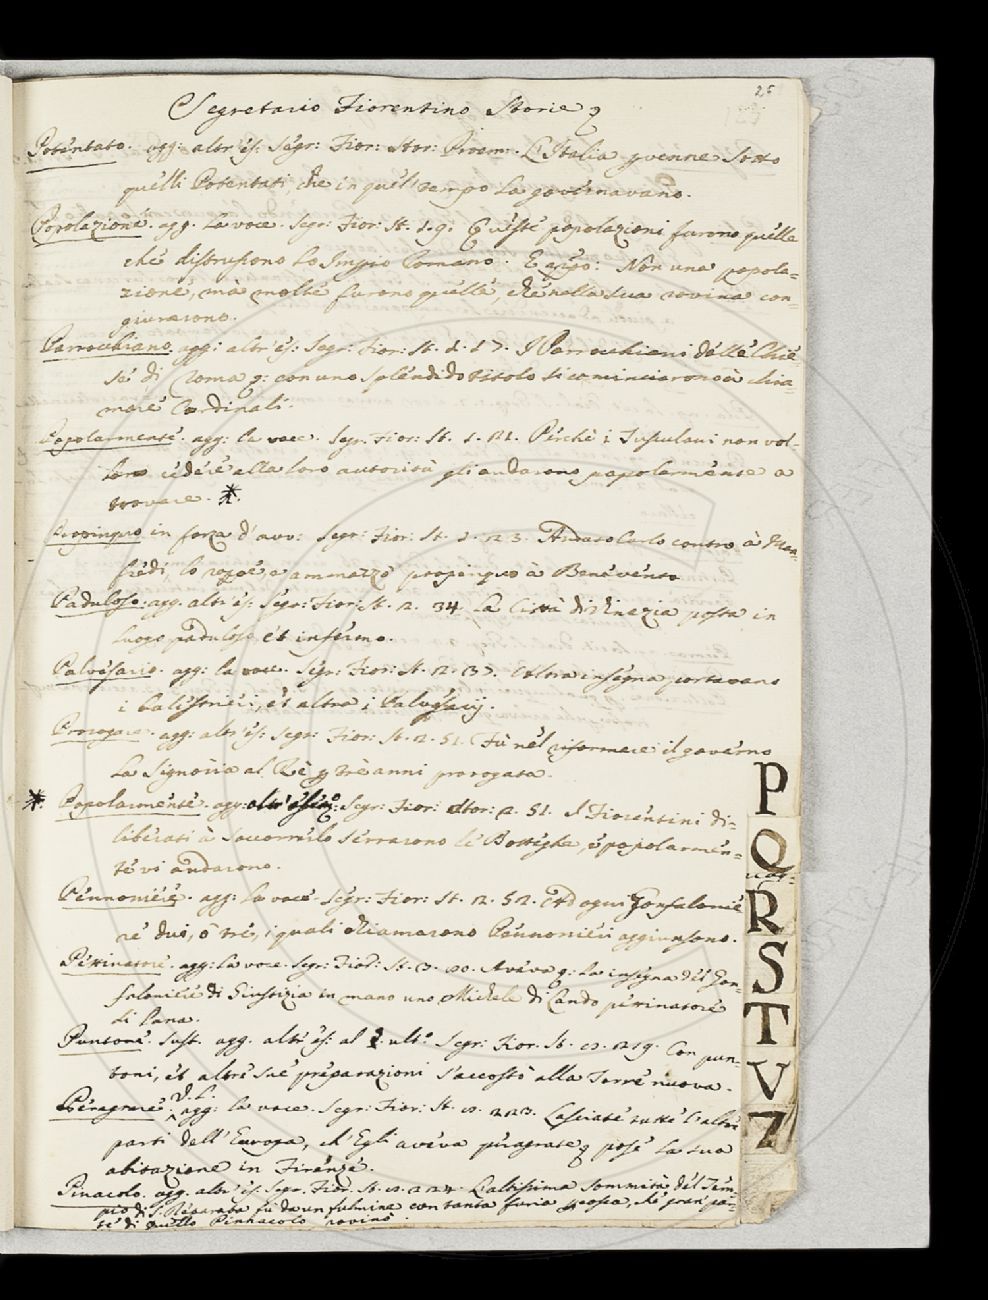 25
Segretario Fiorentino Storie
Potentato. agg: altr' es: Segr: Fior: Stor: Proem: L'Italia venne sotto
quelli Potentati, che in quel tempo la governavano.
Popolazione. agg. la voce. Segr: Fior: St. 1. 9. Queste popolazioni furono quelle
che distrussono lo Impio Romano. E Non una popola=
zione, mà molte furono quelle, che nella sua rovina con=
giurarono.
Parrochiano. agg: altr' es: Segr: Fior: St. 1. 17. I Parrochiani delle Chie=
se di Roma con uno splendido titolo si cominciarono à chia=
mare Cardinali.
Popolarmente. agg: la voce. Segr: Fior: St. 1. 21. Perchè i non vol=
loro cedere alla loro autorità gli andarono popolarmente a
trovare. *
Propinquo in forza d' avv: Segr: Fior: St. 1. 23. Andato Carlo contro à Man=
fredi, lo roppe e ammazzò propinquo à Benevento
Paduloso: agg. altr' es: Segr: Fior: St. 1. 34. La Città di Vinezia posta in
luogo paduloso, et infermo.
Palvesario. agg: la voce. Segr: Fior: St. 2. insegna portavano
i Balestrieri, et altra i Palvesarij.
Prorogare. agg: altr' es: Segr: Fior: St. 2. 51. Fù nel riformare il governo
la Signoria al Rè tre anni prorogata.
* Popolarmente. agg: Segr: Fior: Stor: 2. 51. I Fiorentini di=
liberati à soccorrerlo serrarono le Botteghe, e popolarmen=
te vi andarono.
Pennoniere. agg: la voce. Segr: Fior: St. 2. 52. Et ad ogni Gonfalonie
re dui, ò tre, i quali chiamarono Pennonieri aggiunsono.
Pettinatore. agg: la voce. Segr: Fior: St. 3. Aveva la insegna del Gon=
faloniere di Giustizia in mano uno Michele di Lando pettinatore
di lana.
Puntone. sust. agg. altr' es: al §. ult.º Segr: Fior: St. Con pun=
toni, et altre sue preparazioni s'accostò alla Torre nuova.
Peragrare. V. L. agg: la voce. Segr: Fior: St. Lasciate tutte l'altre
parti dell' Europa, ch' Egli aveva peragrate, pose la sua
abitazione in Firenze.
Pinacolo. agg. altr' es: Segr. Fior: St. L'altissima sommità del Tem=
pio di S. Reparata fù da un fulmine con tanta furia percossa, che gran pa=
te di quello Pinnacolo rovinò.
P
Q
R
S
T
V
Z